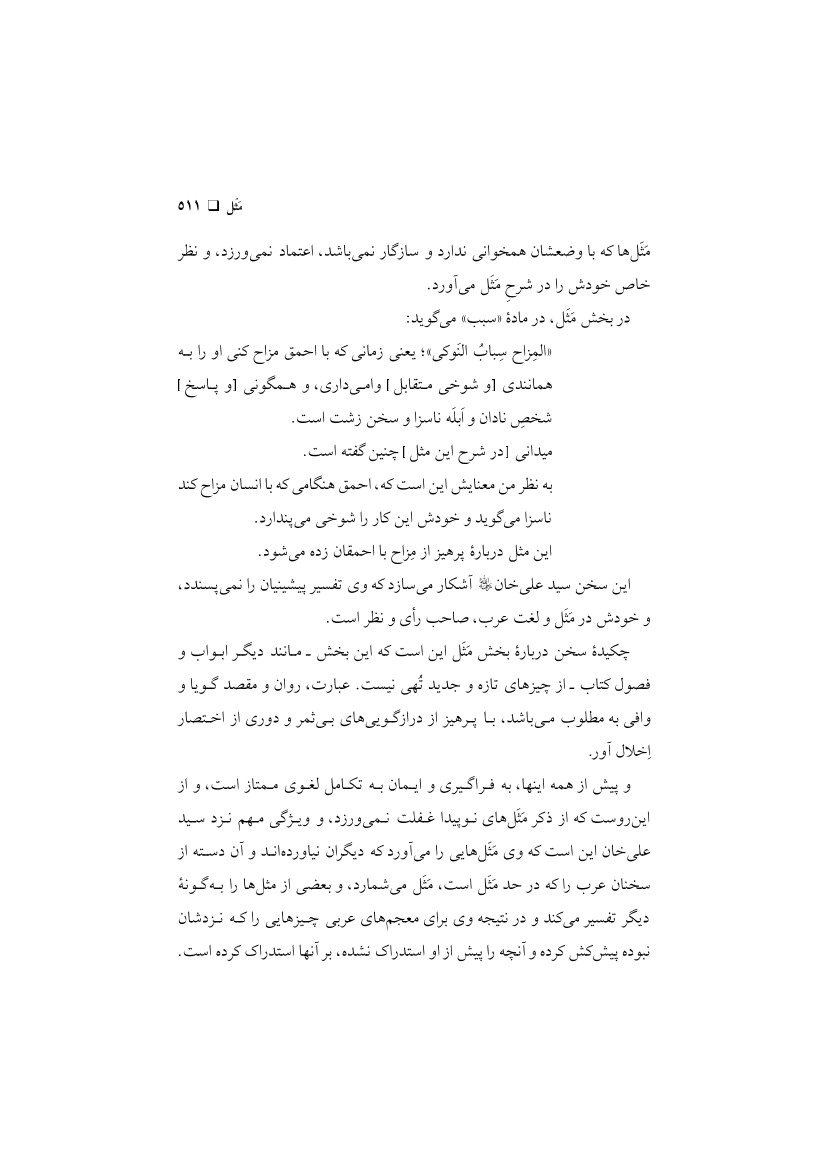 مَثَل □ ۵۱۱
مَثَل‌ها که با وضعشان همخوانی ندارد و سازگار نمی‌باشد، اعتماد نمی‌ورزد، و نظر
خاص خودش را در شرحِ مَثَل می‌آورد.
در بخش مَثَل، در مادهٔ «سبب» می‌گوید:
«المِزاح سِبابُ النَوکی»؛ یعنی زمانی که با احمق مزاح کنی او را به
همانندی [و شوخی متقابل] وامی‌داری، و همگونی [و پاسخ]
شخصِ نادان و اَبلَه ناسزا و سخن زشت است.
میدانی [در شرح این مثل] چنین گفته است.
به نظر من معنایش این است که، احمق هنگامی که با انسان مزاح کند
ناسزا می‌گوید و خودش این کار را شوخی می‌پندارد.
این مثل دربارهٔ پرهیز از مِزاح با احمقان زده می‌شود.
این سخن سید علی‌خان آشکار می‌سازد که وی تفسیر پیشینیان را نمی‌پسندد،
و خودش در مَثَل و لغت عرب، صاحب رأی و نظر است.
چکیدهٔ سخن دربارهٔ بخش مَثَل این است که این بخش ـ مانند دیگر ابواب و
فصول کتاب ـ از چیزهای تازه و جدید تُهی نیست. عبارت، روان و مقصد گویا و
وافی به مطلوب می‌باشد، با پرهیز از درازگویی‌های بی‌ثمر و دوری از اختصار
اِخلال آور.
و پیش از همه اینها، به فراگیری و ایمان به تکامل لغوی ممتاز است، و از
این‌روست که از ذکر مَثَل‌های نوپیدا غفلت نمی‌ورزد، و ویژگی مهم نزد سید
علی‌خان این است که وی مَثَل‌هایی را می‌آورد که دیگران نیاورده‌اند و آن دسته از
سخنان عرب را که در حد مَثَل است، مَثَل می‌شمارد، و بعضی از مثل‌ها را به‌گونهٔ
دیگر تفسیر می‌کند و در نتیجه وی برای معجم‌های عربی چیزهایی را که نزدشان
نبوده پیش‌کش کرده و آنچه را پیش از او استدراک نشده، بر آنها استدراک کرده است.